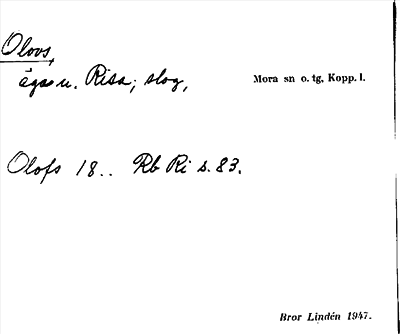 Olovs,
ägo u. Risa; slog, Mora sn o. tg, Kopp. l.
Olofs 18.. Rb Ri s. 83.
Bror Lindén 1947.